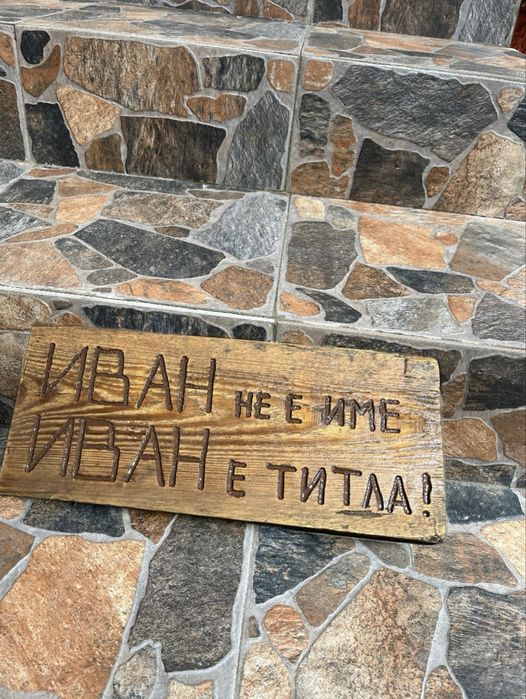 ИВАН НЕ Е ИМЕ
ИВАН Е ТИТЛА!